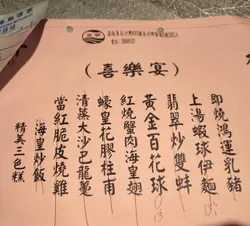 (喜樂宴)
即燒鴻運乳豬
上湯蝦球伊麵
翡翠炒雙蚌
黃金百花球
紅燒蟹肉海皇翅
蠔皇花膠柱甫
清蒸大沙巴龍躉
當紅脆皮燒雞
海皇炒飯
精美三色糕